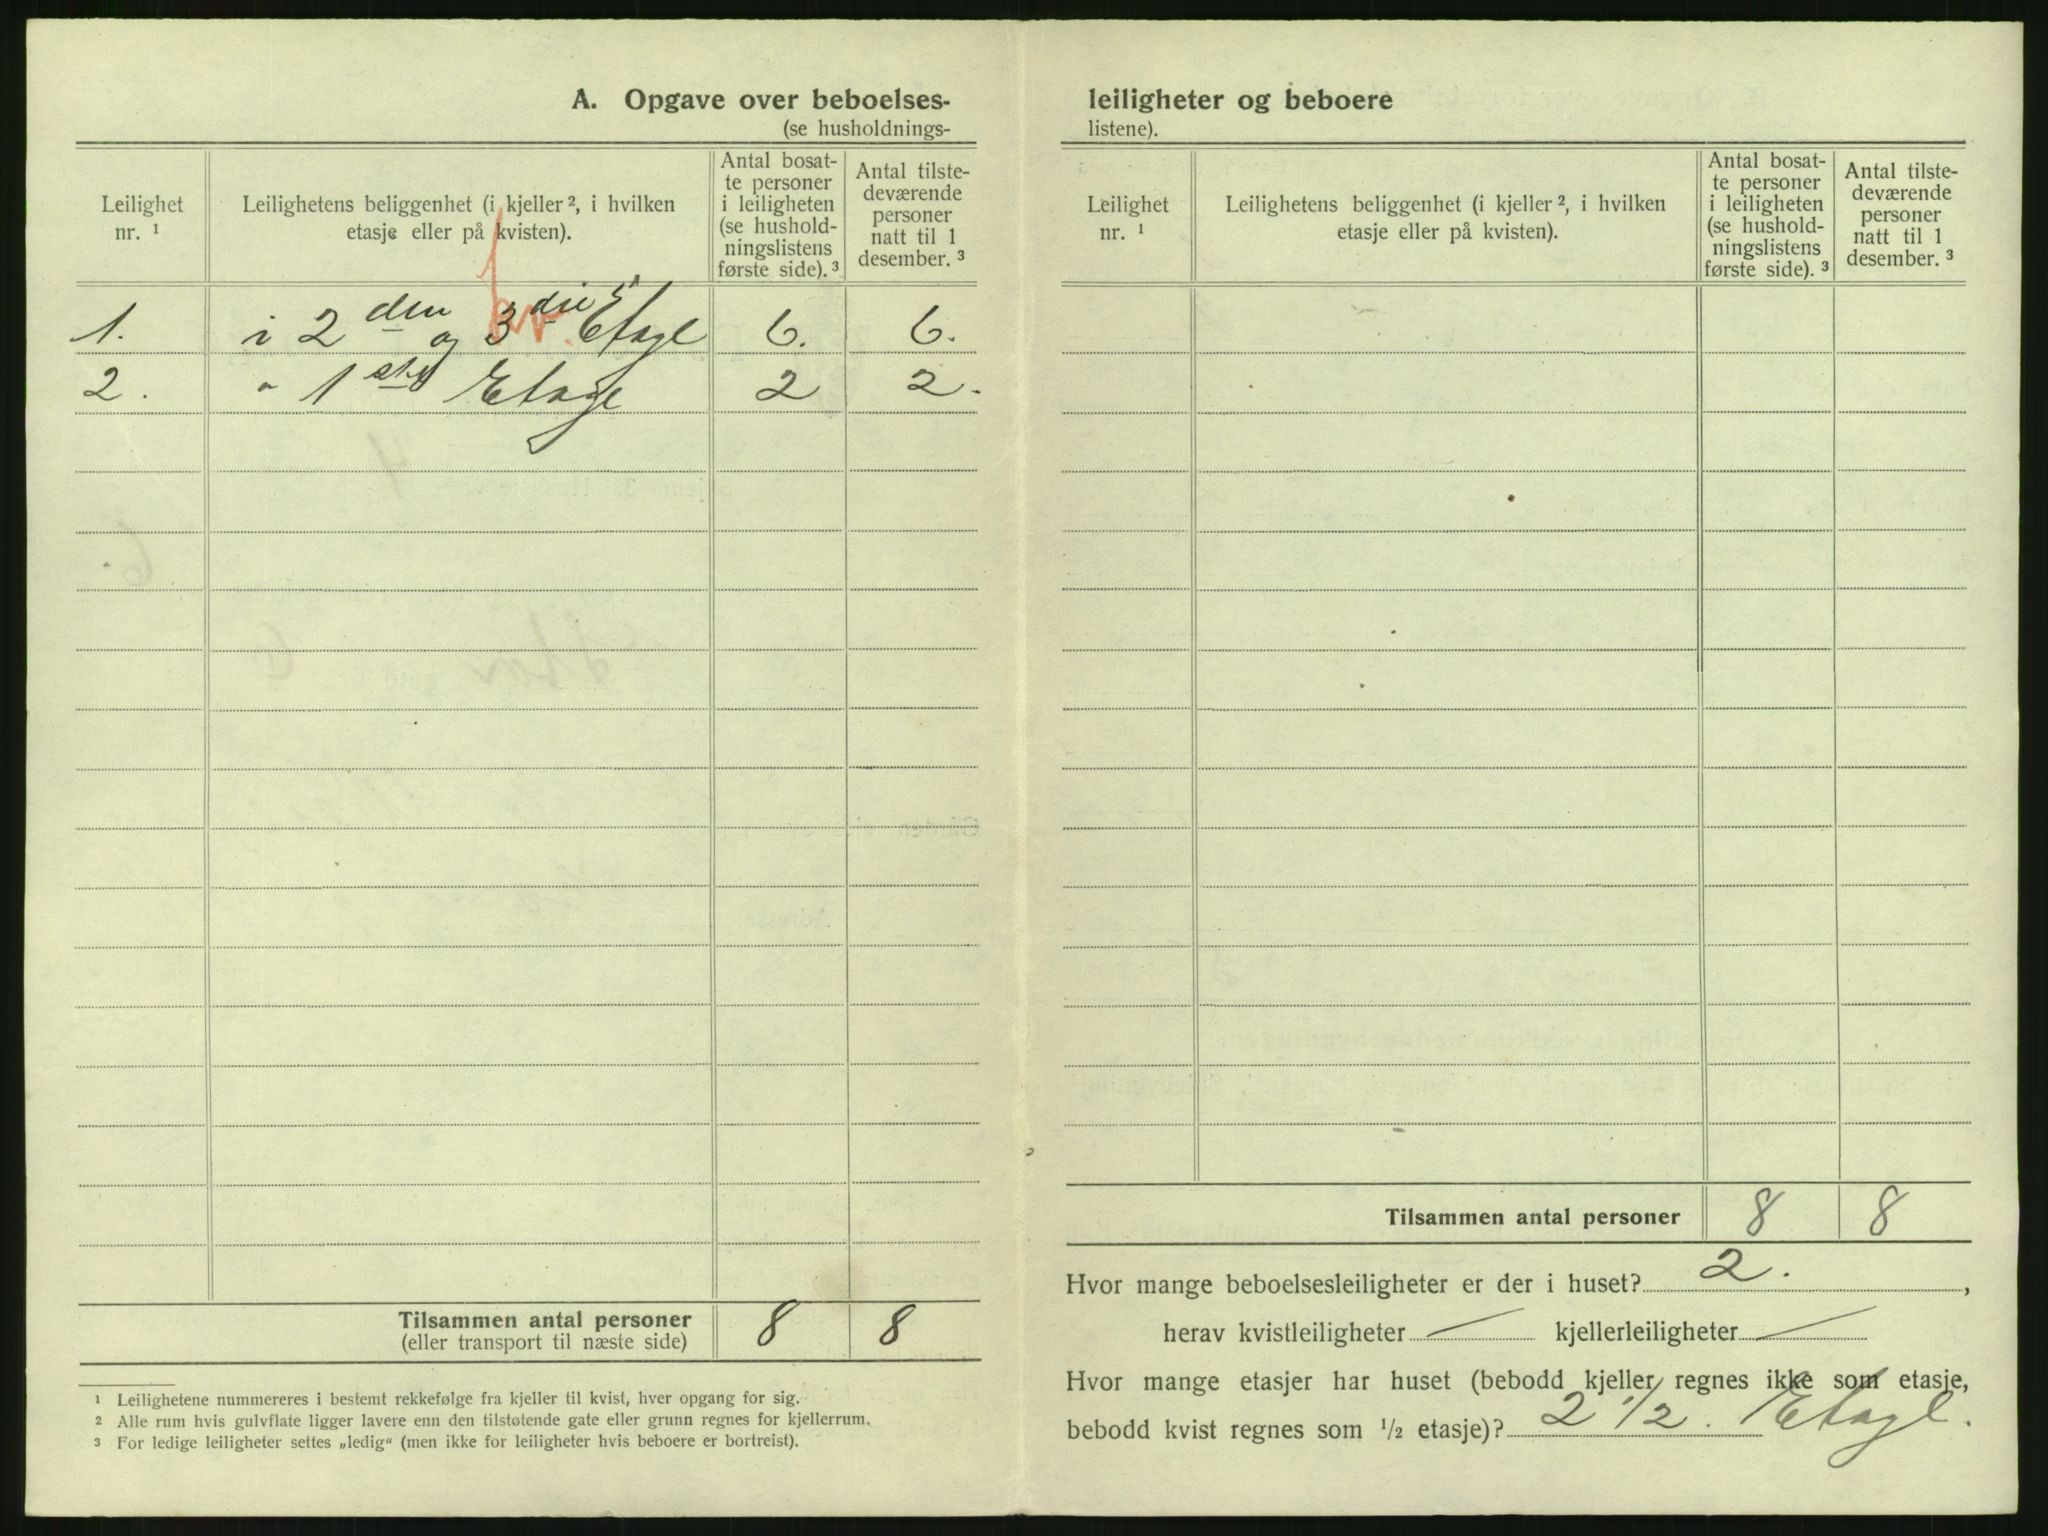 A. Opgave over beboelses-
(se husholdnings-
Leilighet nr. ¹
Leilighetens beliggenhet (i kjeller ², i hvilken etasje eller på kvisten).
Antal bosat-te personer i leiligheten (se hushold-ningslistens første side). ³
Antal tilste-deværende personer natt til 1 desember. ³
1. i 2 den og 3 die Etage 6. 6.
2. " 1 ste Etage 2 2.
Tilsammen antal personer 8 8
(eller transport til næste side)
¹ Leilighetene nummereres i bestemt rekkefølge fra kjeller til kvist, hver opgang for sig.
² Alle rum hvis gulvflate ligger lavere enn den tilstøtende gate eller grunn regnes for kjellerrum.
³ For ledige leiligheter settes „ledig“ (men ikke for leiligheter hvis beboere er bortreist).
leiligheter og beboere
listene).
Leilighet nr. ¹
Leilighetens beliggenhet (i kjeller ², i hvilken etasje eller på kvisten).
Antal bosat-te personer i leiligheten (se hushold-ningslistens første side). ³
Antal tilste-deværende personer natt til 1 desember. ³
Tilsammen antal personer 8 8
Hvor mange beboelsesleiligheter er der i huset? 2. ,
herav kvistleiligheter — kjellerleiligheter —
Hvor mange etasjer har huset (bebodd kjeller regnes ikke som etasje,
bebodd kvist regnes som ½ etasje)? 2 ½. Etage.